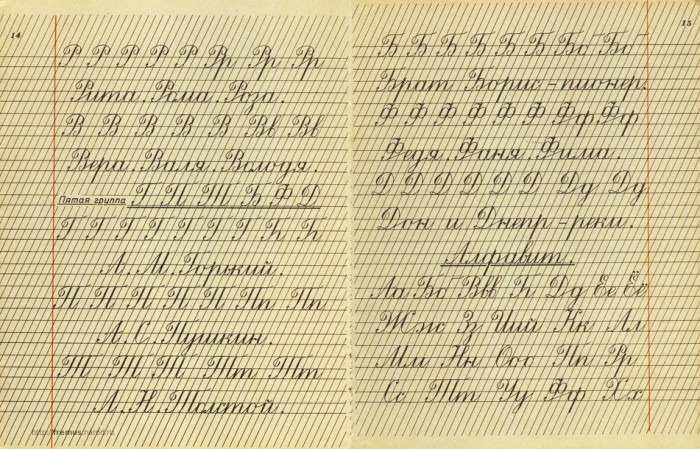 14
Р Р Р Р Р Р Рр Рр Рр
Рита. Рома. Роза.
В В В В В В Вв Вв
Вера. Валя. Володя.
Пятая группа Г П Т Б Ф Д
Г Г Г Г Г Г Г Гг Гг
А. М. Горький.
П П П П П П Пп Пп
А. С. Пушкин.
Т Т Т Т Тт Тт
Л. Н. Толстой.
http://fremus.narod.ru
15
Б Б Б Б Б Б Бб Бб
Брат Борис - пионер.
Ф Ф Ф Ф Ф Ф Фф Фф
Федя. Фаня. Фима.
Д Д Д Д Д Д Дд Дд
Дон и Днепр - реки.
Алфавит.
Аа Бб Ввв Гг Дд Ее Ёё
Жж Зз Иий Кк Лл
Мм Нн Оо Пп Рр
Сс Тт Уу Фф Хх